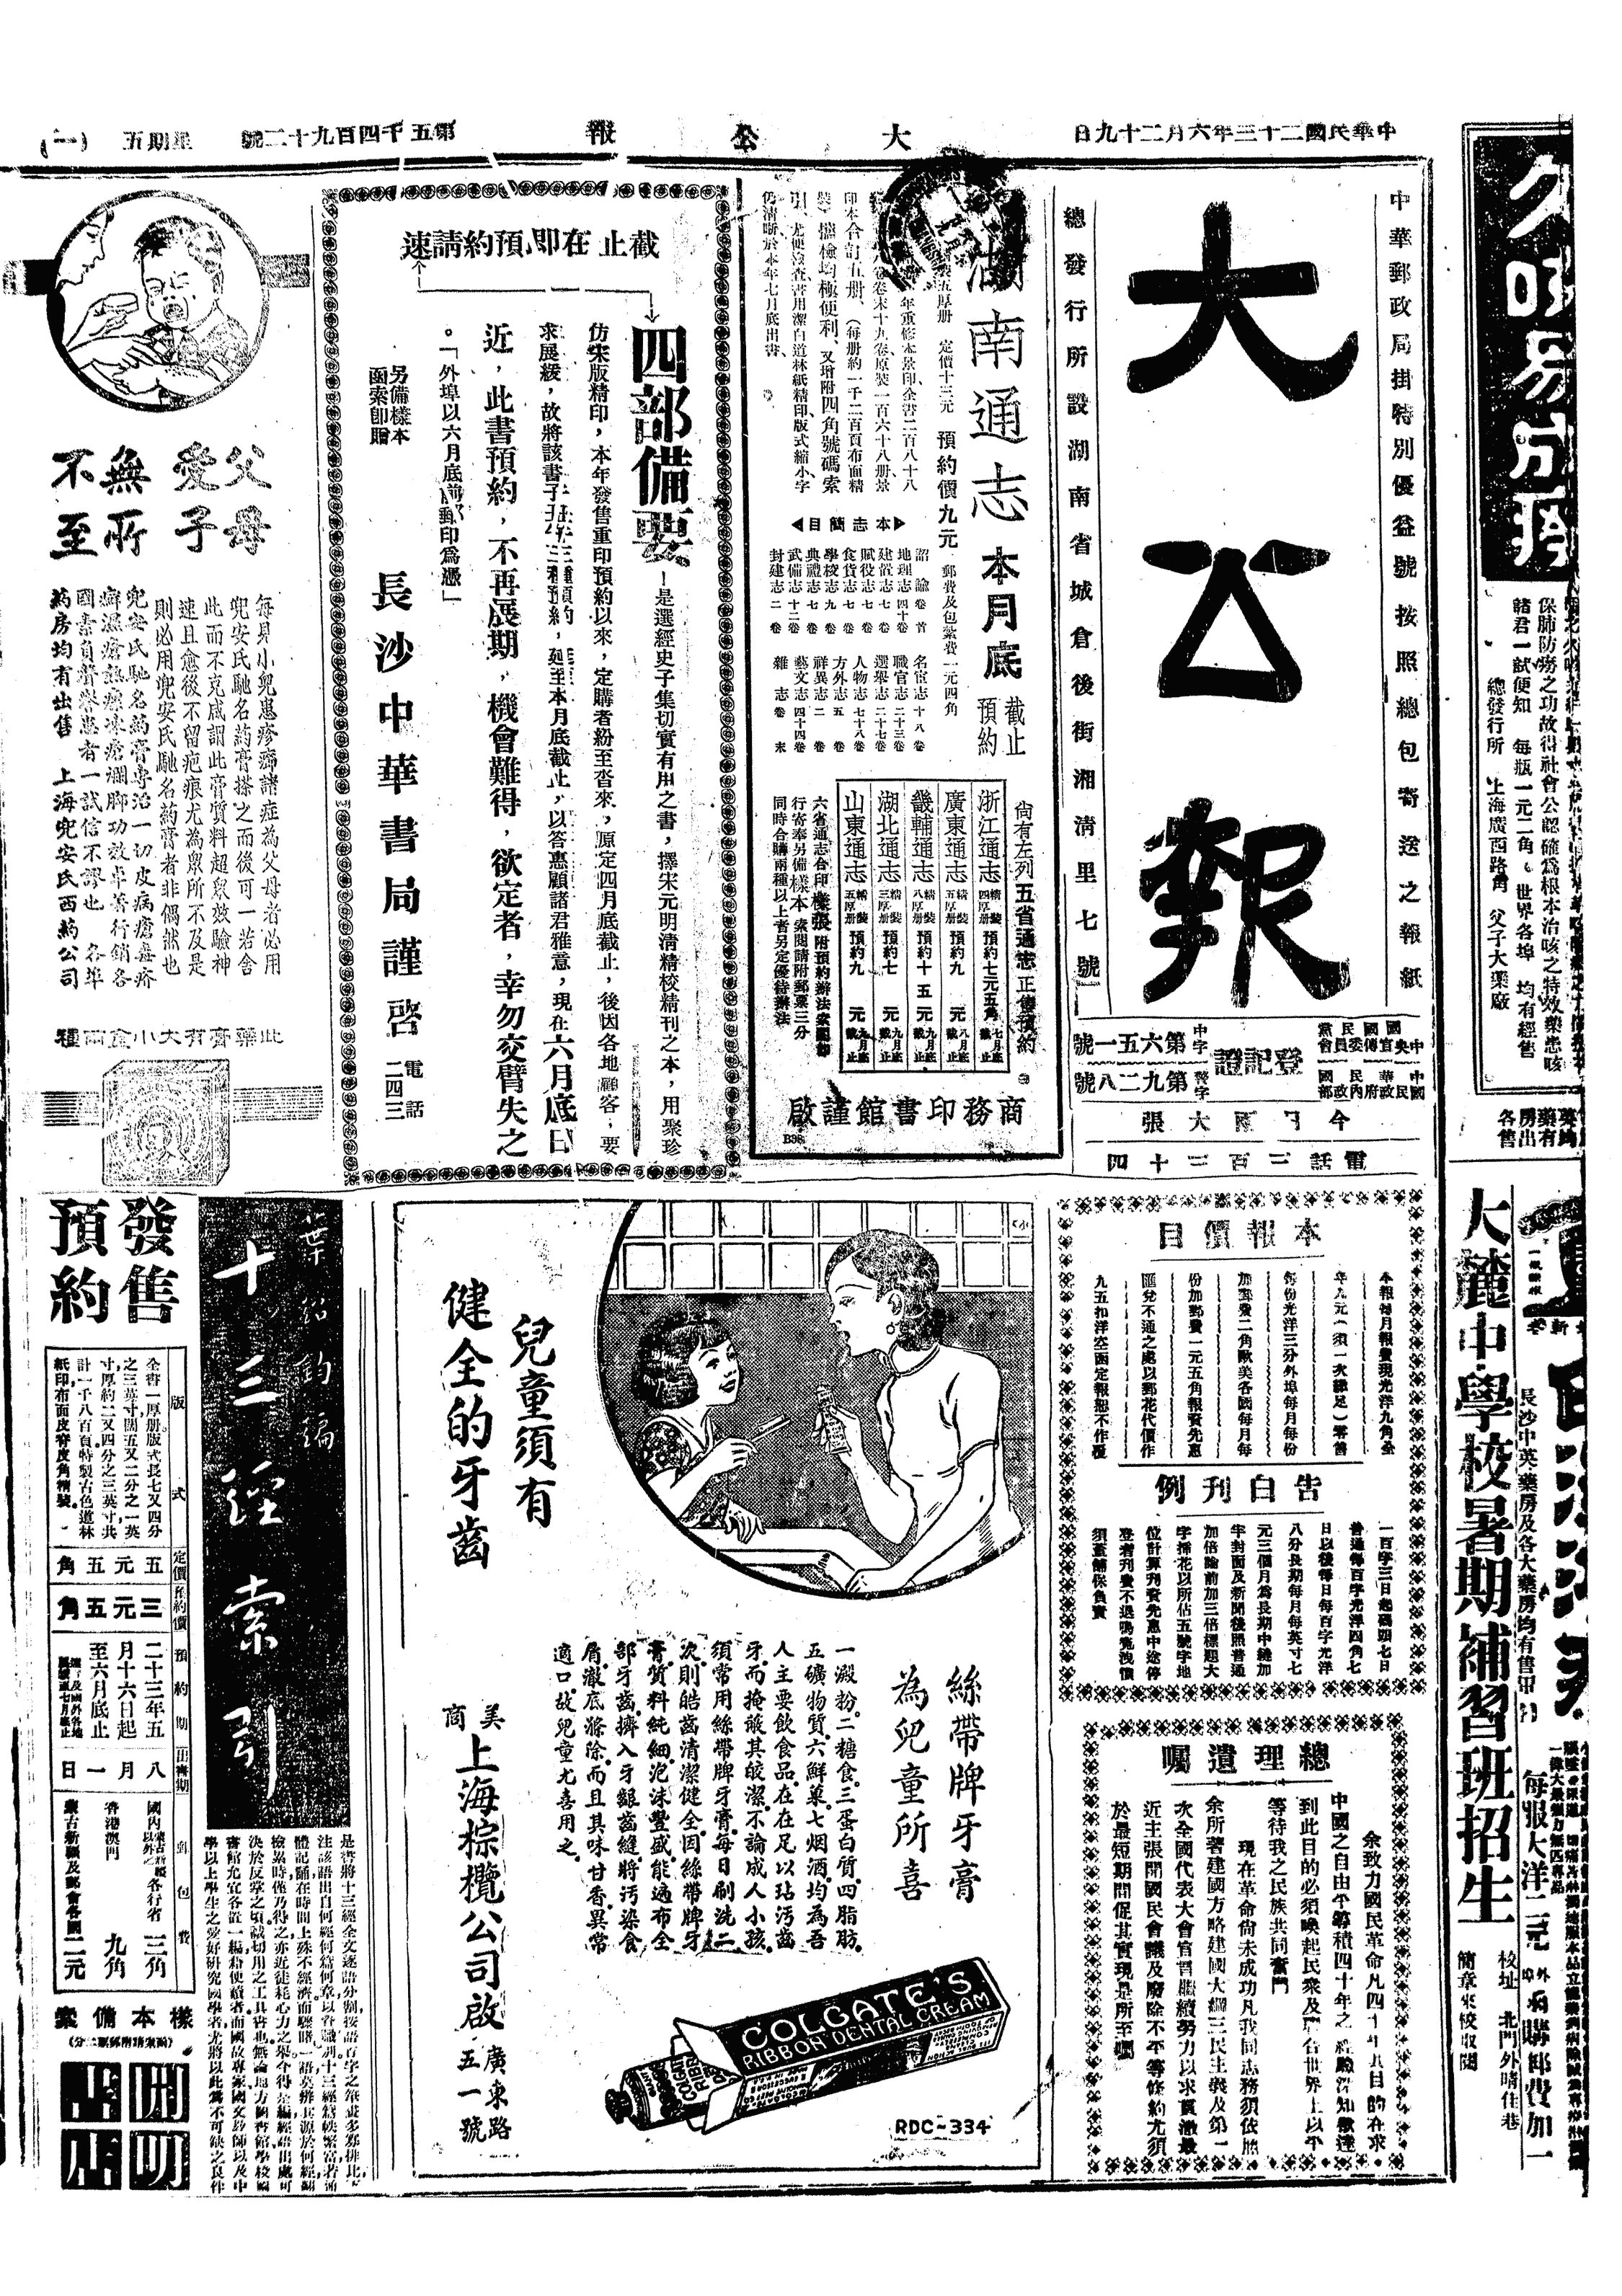 中華民國二十三年六月二十九日
大公報
第五千四百九十二號
星期五
(一)
中華郵政局掛特別優益號按照總包寄送之報紙
大公報
總發行所設湖南省城倉後街湘清里七號
中國國民黨中央宣傳委員會
登記證
中字第六五一號
中華民國國民政府內政部
警字第九二八號
今日四大張
電話二百三十四
湖南通志
本月底
截止預約
定價十三元 預約價九元 郵費及包紮費一元四角
印本合訂五册、(每册約一千二百頁布面精
裝)檢均極便利、又增附四角號碼索
引、尤便檢查書用潔白道林紙精印版式縮小字
仍清晰於本年七月底出書、
本志簡目
詔諭 卷首
地理志 四十卷
建置志 七卷
賦役志 七卷
食貨志 七卷
學校志 九卷
典禮志 七卷
武備志 十二卷
封建志 二卷
名宦志 十八卷
職官志 二十三卷
選舉志 二十七卷
人物志 七十八卷
方外志 五卷
祥異志 二卷
藝文志 四十四卷
雜志 卷末
尚有左列五省通志正售預約
浙江通志 精裝四厚册 預約七元五角 七月底截止
廣東通志 精裝五厚册 預約九元 八月底截止
畿輔通志 精裝八厚册 預約十五元 九月底截止
湖北通志 精裝三厚册 預約七元 九月底截止
山東通志 精裝五厚册 預約九元 九月底截止
六省通志合印樣張附預約辦法索閱即
行寄奉另備樣本索閱請附郵票三分
同時合購兩種以上者另定優待辦法
商務印書館謹啟
B36
截止在即預約請速
四部備要
—是選經史子集切實有用之書,擇宋元明清精校精刊之本,用聚珍
仿宋版精印,本年發售重印預約以來,定購者紛至沓來,原定四月底截止,後因各地顧客,要
求展緩,故將該書預約,延至本月底截止,以答惠顧諸君雅意,現在六月底日
近,此書預約,不再展期,機會難得,欲定者,幸勿交臂失之
。「外埠以六月底前郵印爲憑」
另備樣本
函索即贈
長沙中華書局謹啓
電話二四三
父母愛子
無所不至
每見小兒患疹癤諸症為父母者必用
兜安氏馳名葯膏搽之而後可一若舍
此而不克成謂此膏質料超衆效驗神
速且愈後不留疤痕尤為衆所不及是
則必用兜安氏馳名葯膏者非偶然也
兜安氏馳名葯膏專治一切皮病瘡毒疥
癬濕瘡熱瘰凍瘡爛脚功效卓著行銷各
國素負聲譽患者一試信不謬也 各埠
葯房均有出售 上海兜安氏西葯公司
此藥膏有大小盒兩種
本報價目
本報每月報費現光洋九角全
年九元(須一次繳足)零售
每份光洋三分外埠每月每份
加郵費二角歐美各國每月每
份加郵費一元五角報費先惠
匯兌不通之處以郵花代價作
九五扣洋空函定報恕不作覆
告白刊例
一百字三日起碼頭七日
普通每百字光洋四角七
日以後每日每百字光洋
八分長期每月每英寸七
元三個月爲長期中縫加
半封面及新聞後照普通
加倍論前加三倍標題大
字掃花以所佔五號字地
位計算刊費先惠中途停
登者刊費不退鳴寃洩憤
須蓋舖保負責
總理遺囑
余致力國民革命凡四十年其目的在求
中國之自由平等積四十年之經驗深知欲達
到此目的必須喚起民衆及聯合世界上以平
等待我之民族共同奮鬥
現在革命尚未成功凡我同志務須依照
余所著建國方略建國大綱三民主義及第一
次全國代表大會宣言繼續努力以求貫澈最
近主張開國民會議及廢除不平等條約尤須
於最短期間促其實現是所至囑
兒童須有
健全的牙齒
絲帶牌牙膏
為兒童所喜
一澱粉。二糖食。三蛋白質。四脂肪。
五礦物質。六鮮菓。七烟酒。均為吾
人主要飲食品。在在足以玷汚齒
牙。而掩蔽其皎潔。不論成人小孩。
須常用絲帶牌牙膏。每日刷洗二
次。則皓齒清潔健全。因絲帶牌牙
膏質料純細。泡沫豐盛。能遍布全
部牙齒。擠入牙齦齒縫。將汚染食
屑。澈底滌除。而且其味甘香。異常
適口。故兒童尤喜用之。
美商
上海棕欖公司啟
廣東路五一號
COLGATE'S
RIBBON DENTAL CREAM
RDC-334
葉紹鈞編
十三經索引
是書將十三經全文逐語分割,按語首字之筆畫多寡排比,
注該語出自何經何篇何章以資識別十三經篇帙繁富者
檢累時恆乃得之亦近徒耗心力之舉今得本編經語出處可
決於反掌之頃誠切用之工具書也無論地方圖書館學校
書館允宜各置一編藉便讀者而國故專家國文教師以及中
學以上學生之愛好研究國學者尤將以此爲不可缺之良伴
發售預約
版式
全書一厚册版式長七又四分
之三英寸闊五又二分之一英
寸,厚約二又四分之三英寸共
計一千八百頁,特製古色道林
紙印布面皮脊皮角精裝。
定價 五元五角
預約價 三元五角
預約期
二十三年五
月十六日起
至六月底止
出書期 八月一日
郵包費
國內各行省 三角
香港澳門 九角
蒙古新疆及郵會各國 二元
樣本備索
(函索請附郵票二分)
開明書店
久咳易成癆
保肺防癆之功故得社會公認確爲根本治咳之特效藥患咳
諸君一試便知 每瓶一元二角。世界各埠 均有經售
總發行所 上海廣西路角 父子大藥廠
大麓中學校暑期補習班招生
簡章來校取閱
長沙中英藥房及各大藥房均有售
每服大洋二元